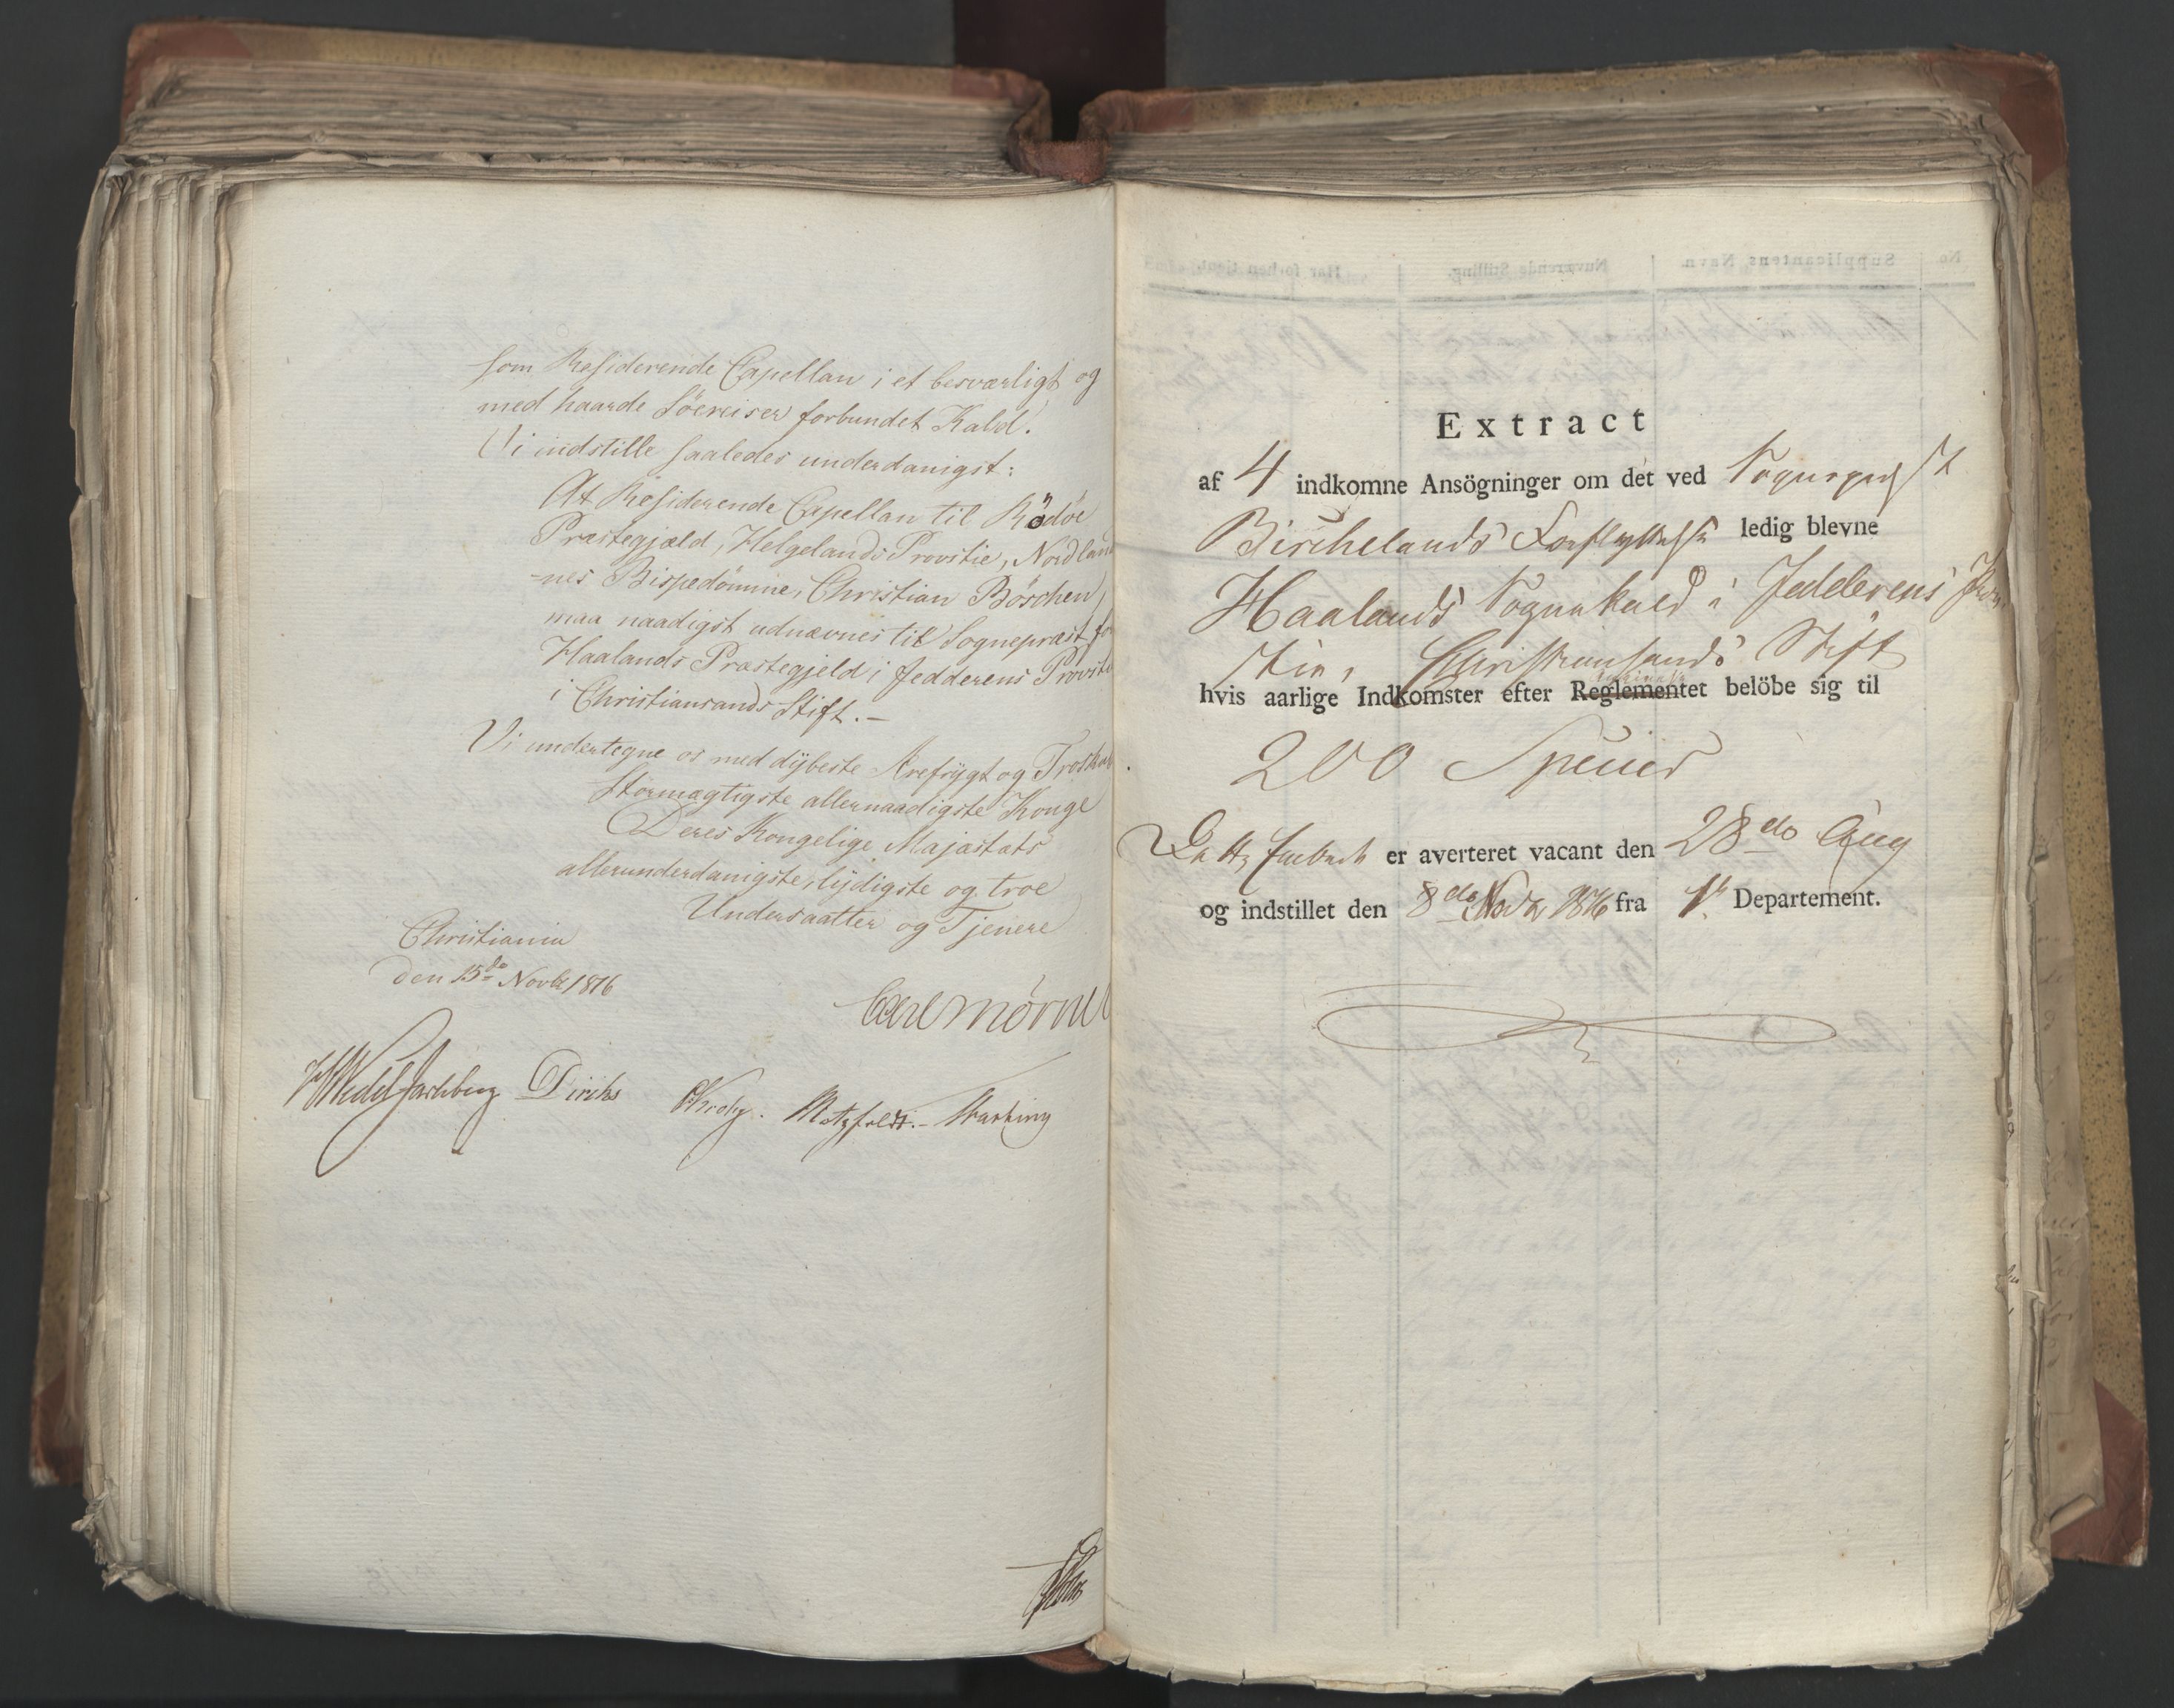 som Residerende Capellan i et besværligt og
med haarde Söereiser forbundet Kald.
Vi indstille saaledes underdanigst:
At Residerende Capellan til Rödöe
Præstegjæld, Helgelands Provstie, Nordlan
-nes Bispedömme, Christian Böschen,
maa naadigst udnævnes til Sognepræst fo
Haalands Præstegjeld i Jedderens Provsti
i Christiansands Stift. –
Vi undertegne os med dÿbeste Ærefrÿgt og Troskab
Stormægtigste allernaadigste Konge
Deres Kongelige Majæstæts
allerunderdanigste, lÿdigste og troe
Undersaatter og Tjenere
Christiania
den 15de Novbr 1816
Carl Mörner
HWedel Jarlsberg Diriks Krohg. Motzfeldt. –
Extract
af 4 indkomne Ansögninger om det ved Sognepræst
Birchelands Forflyttelse ledig blevne
Haalands Sognekald i Jedderens Prov
stie, Christiansands Stift
hvis aarlige Indkomster efter Reglementet belöbe sig til
200 Specier
Dette Embede er averteret vacant den 28de Aug
og indstillet den 8de Novbr 1816 fra 1ste Departement.